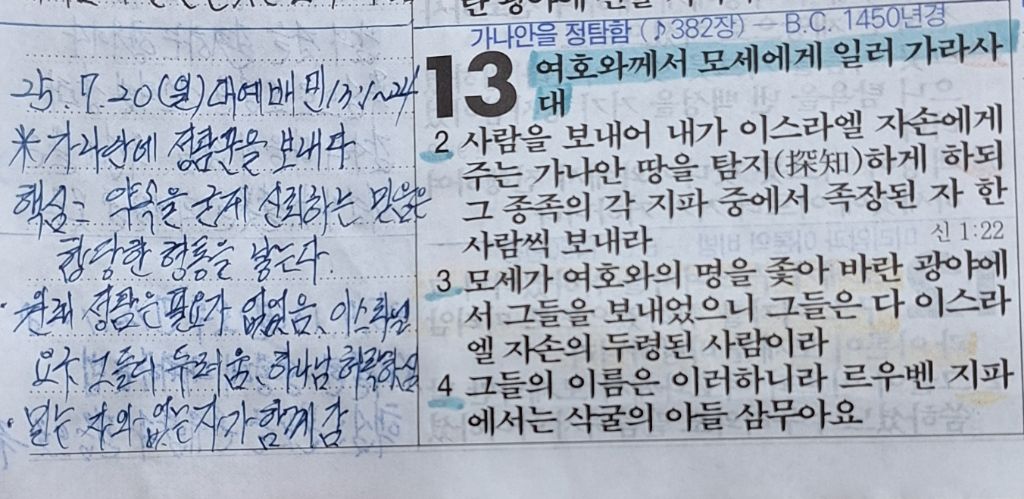 란 광야에
25.7.20(월) 대예배 민13:1~24
※ 가나안에 정탐꾼을 보내다
핵심: 약속을 굳게 신뢰하는 믿음은
합당한 행동을 낳는다.
· 원래 정탐은 필요가 없었음, 이스라엘
요구, 그들의 두려움, 하나님 허락하심
· 믿는 자와 없는 자가 함께 감
가나안을 정탐함 (♪382장) - B.C. 1450년경
13 여호와께서 모세에게 일러 가라사
대
2 사람을 보내어 내가 이스라엘 자손에게
주는 가나안 땅을 탐지(探知)하게 하되
그 종족의 각 지파 중에서 족장된 자 한
사람씩 보내라 신 1:22
3 모세가 여호와의 명을 좇아 바란 광야에
서 그들을 보내었으니 그들은 다 이스라
엘 자손의 두령된 사람이라
4 그들의 이름은 이러하니라 르우벤 지파
에서는 삭굴의 아들 삼무아요